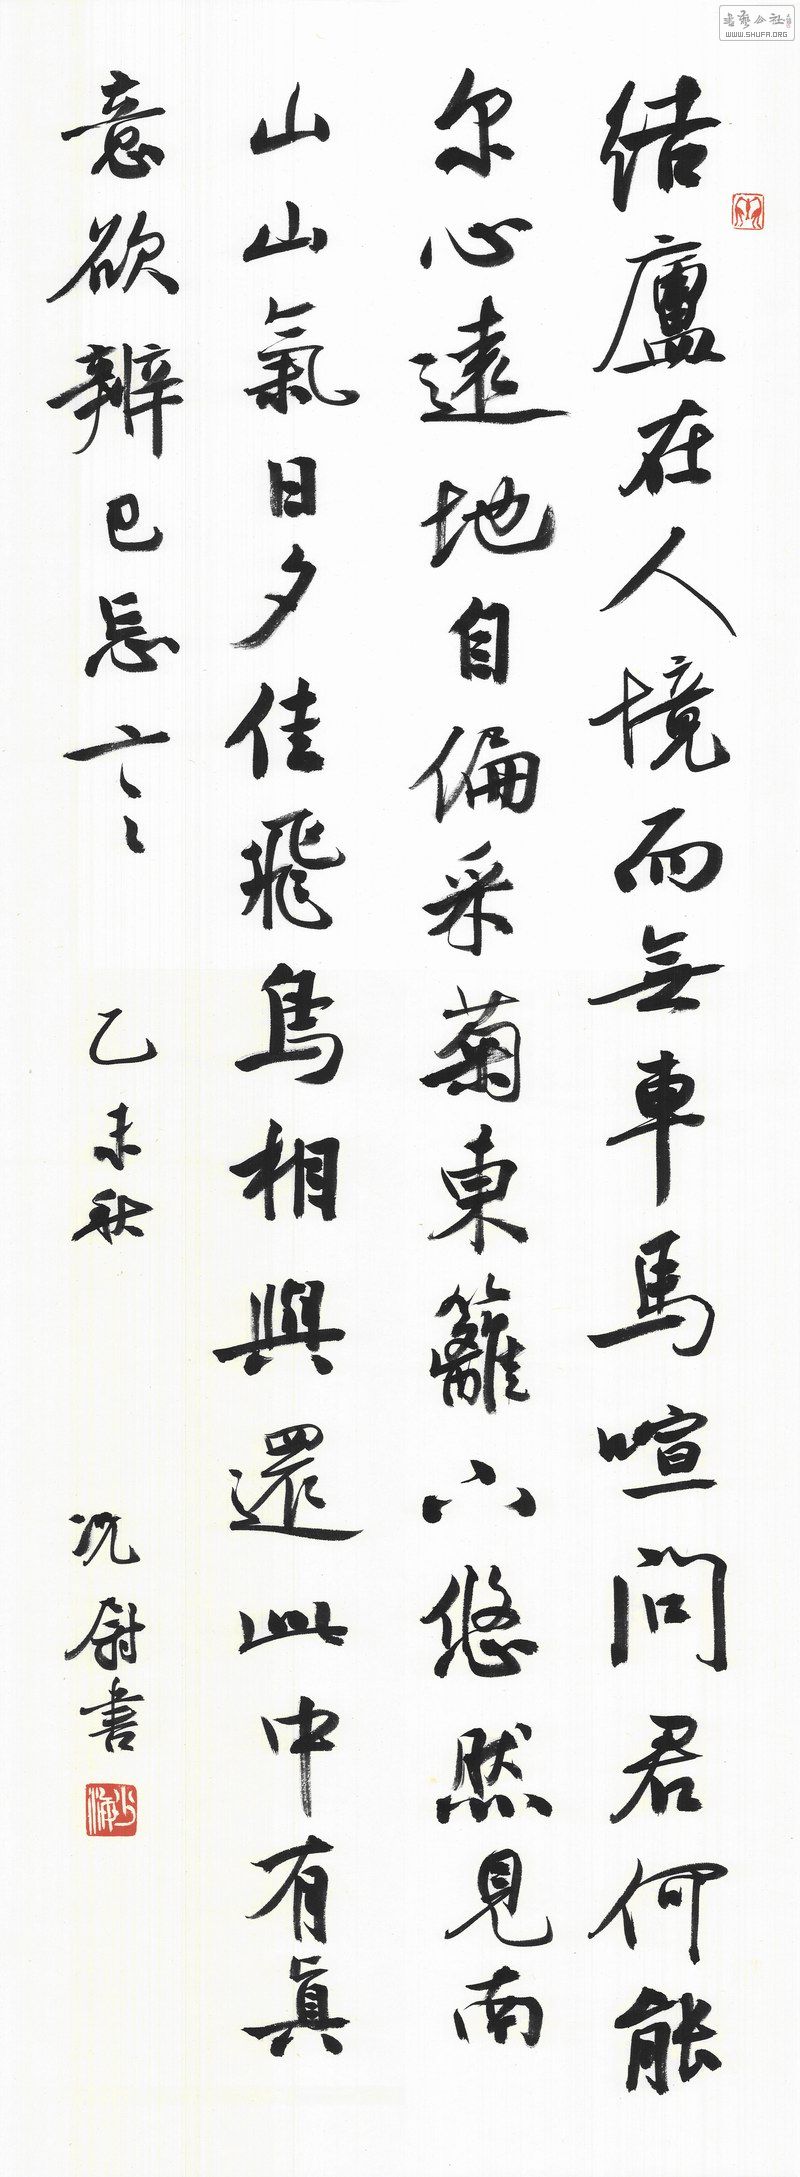 結廬在人境而無車馬喧問君何能
尔心遠地自偏采菊東籬下悠然見南
山山氣日夕佳飛鳥相與還此中有眞
意欲辨已忘言 乙未秋 沈尉書
書藝公社
WWW.SHUFA.ORG